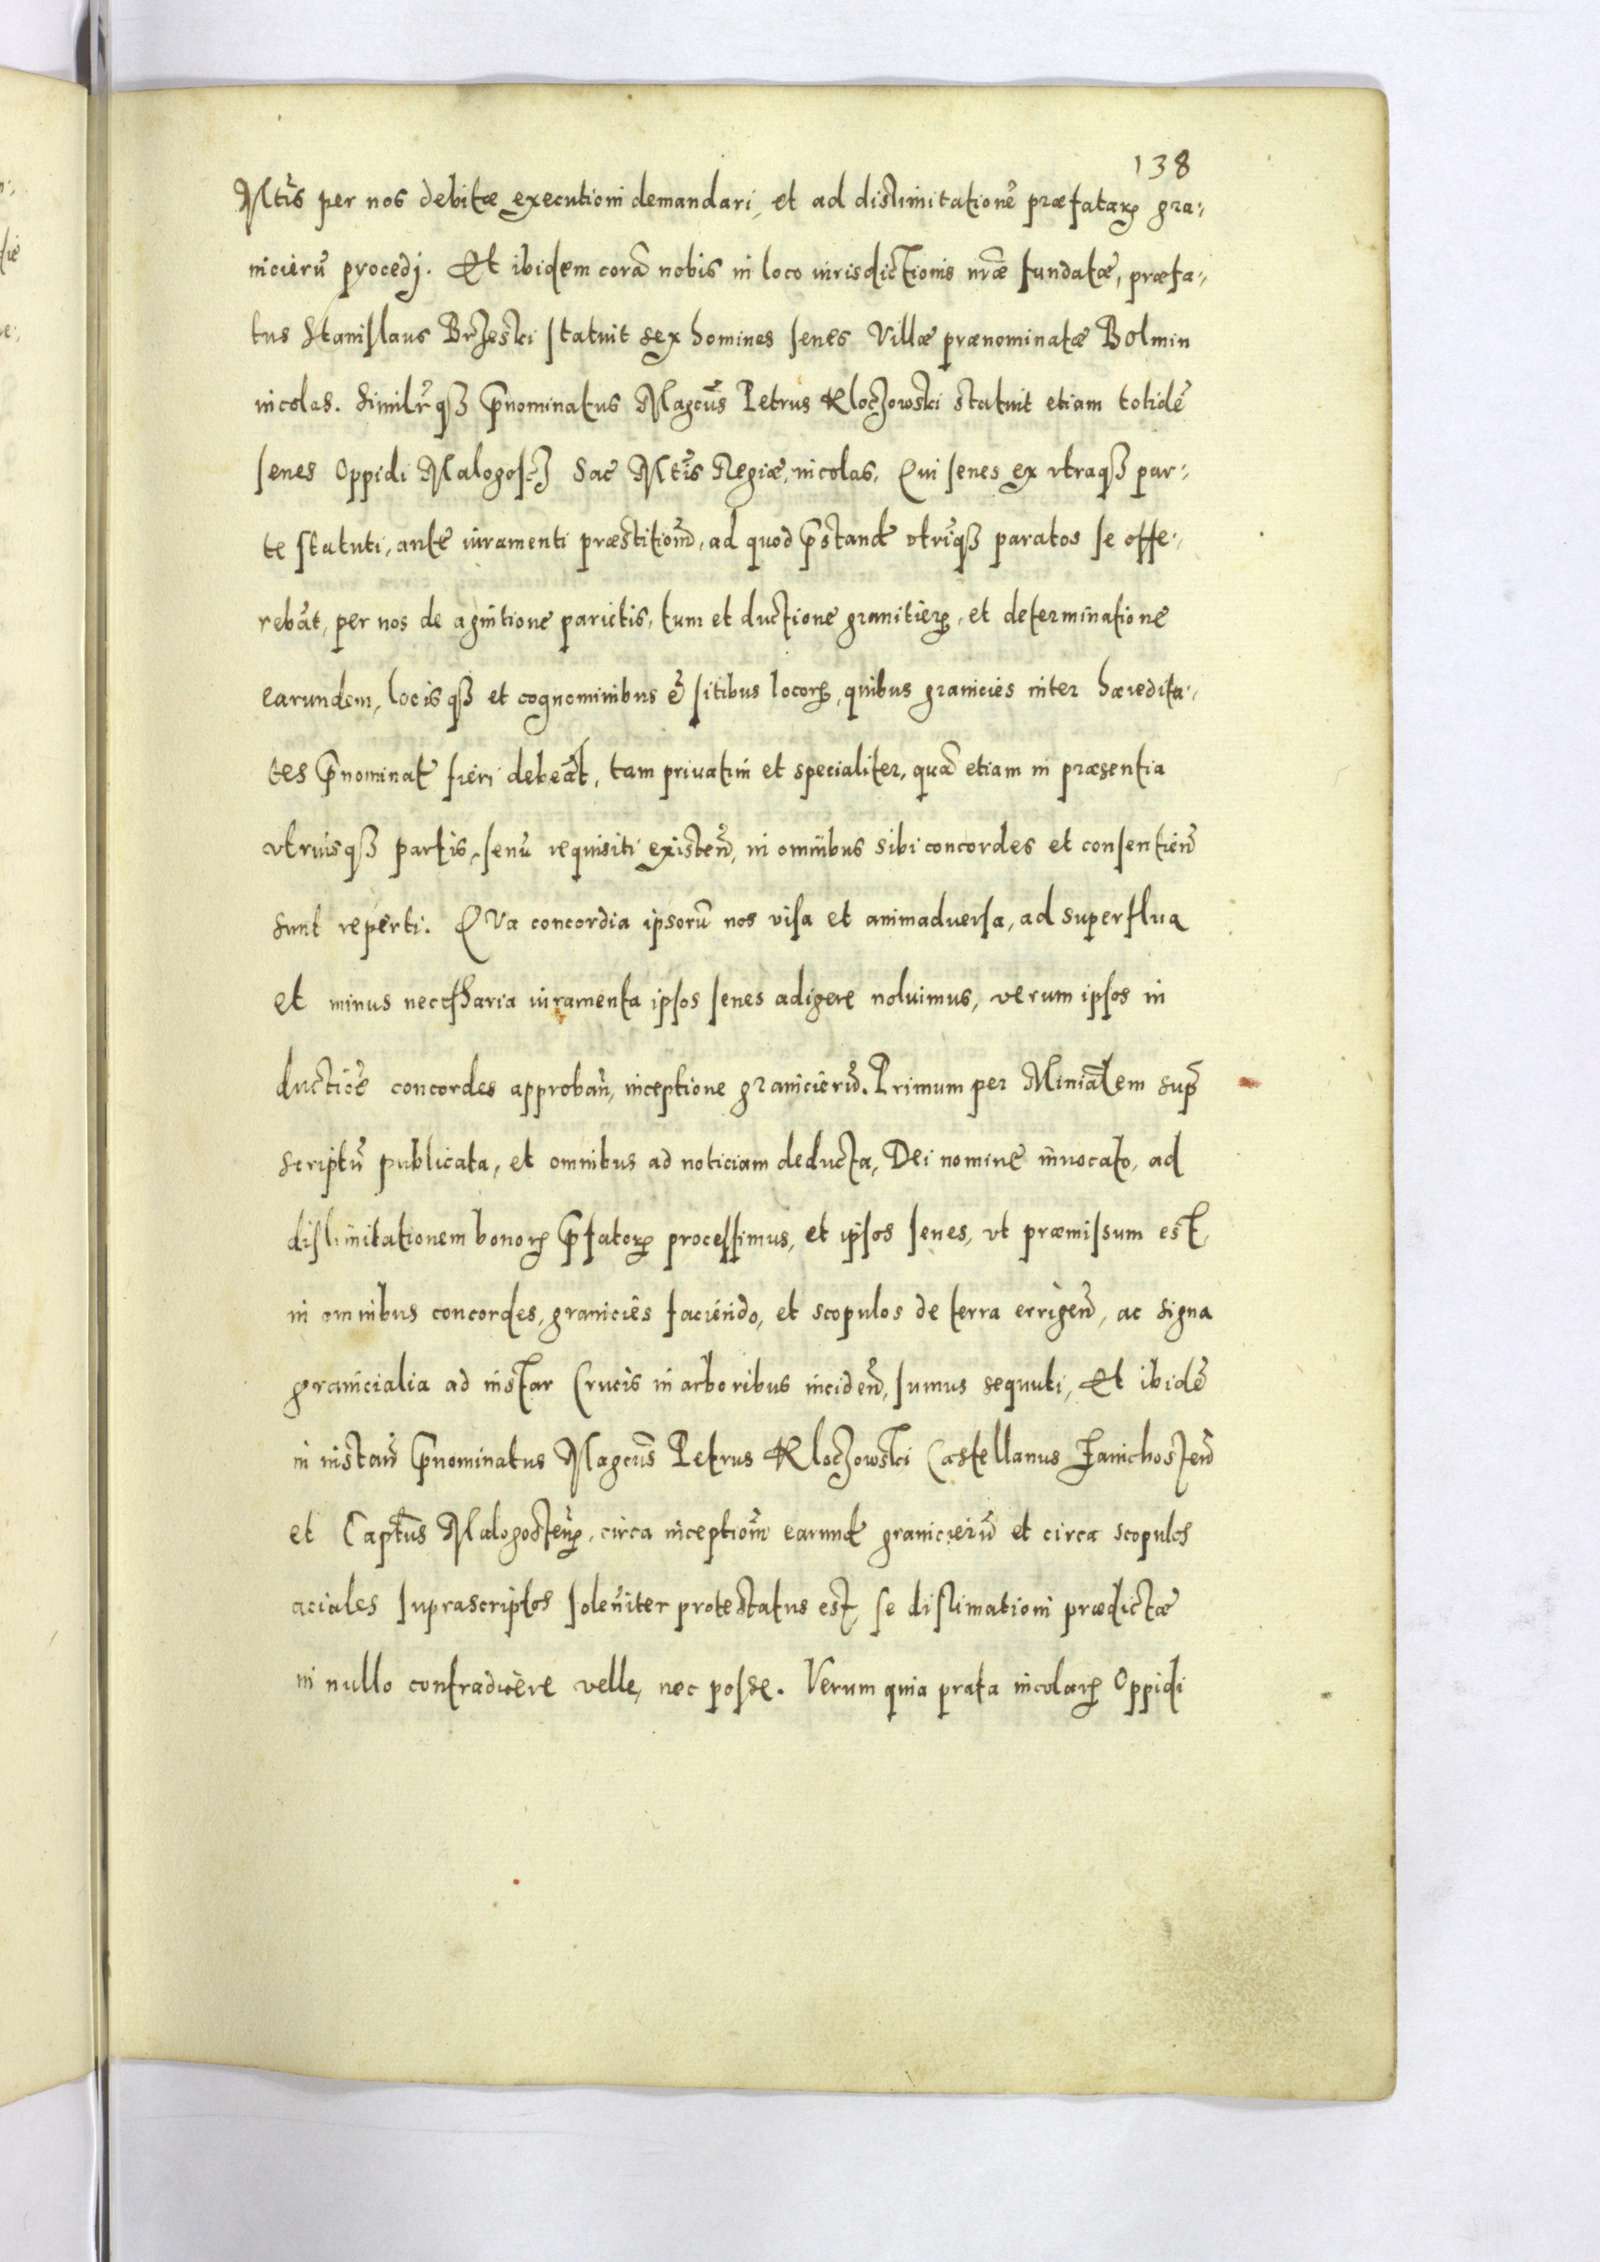 138
Mtis per nos debitæ executioni demandari, et ad dislimitationẽ præfatarꝝ gra-
nicierũ procedj. Et ibidem corã nobis in loco iurisdictionis nrãe fundatæ, præfa-
tus Stanislaus Brzeski statuit sex homines senes Villæ prænominatæ Bolmin
incolas. Similrq̃ꝫ p̃nominatus Magcus Petrus Kloczowski statuit etiam totidẽ
senes Oppidi Malogoscz Sac Mtis Regiæ, incolas. Qui senes ex vtraqꝫ par-
te statuti, ante iuramenti præstitionẽ, ad quod p̃stand vtriqꝫ paratos se offe-
rebãt, per nos de agnitione parietis, tum et ductione granitierꝝ, et determinatione
earundem, locisqꝫ et cognominibus ẽ sitibus locorꝝ, quibus granicies inter hæredita-
tes p̃nominat fieri debeãt, tam privatim et specialiter, quã etiam in præsentia
vtriusqꝫ partis, senũ requisiti existeñ, in omnibus sibi concordes et consentieñ
sunt reperti. QVa concordia ipsorũ nos visa et animaduersa, ad superflua
et minus necessharia iuramenta ipsos senes adigere noluimus, verum ipsos in
ductiõe concordes approbañ, inceptione granicierũ. Primum per Miniãlem sup̃
scriptũ publicata, et omnibus ad noticiam deducta, Dei nomine inuocato, ad
dislimitationem bonorꝝ p̃fatorꝝ processimus, et ipsos senes, vt præmissum est,
in omnibus concordes, granicies faciendo, et scopulos de terra errigeñ, ac signa
granicialia ad instar Crucis in arboribus incideñ, sumus sequuti, Et ibidẽ
in instañ p̃nominatus Magcus Petrus Kloczowski Castellanus Zanichosteñ
et Captus Malogosteñ, circa inceptionẽ earund granicierũ et circa scopulos
aciales suprascriptos soleñiter protestatus est, se dislimationi prædictæ
in nullo contradicere velle, nec posse. Verum quia prata incolarꝝ Oppidi